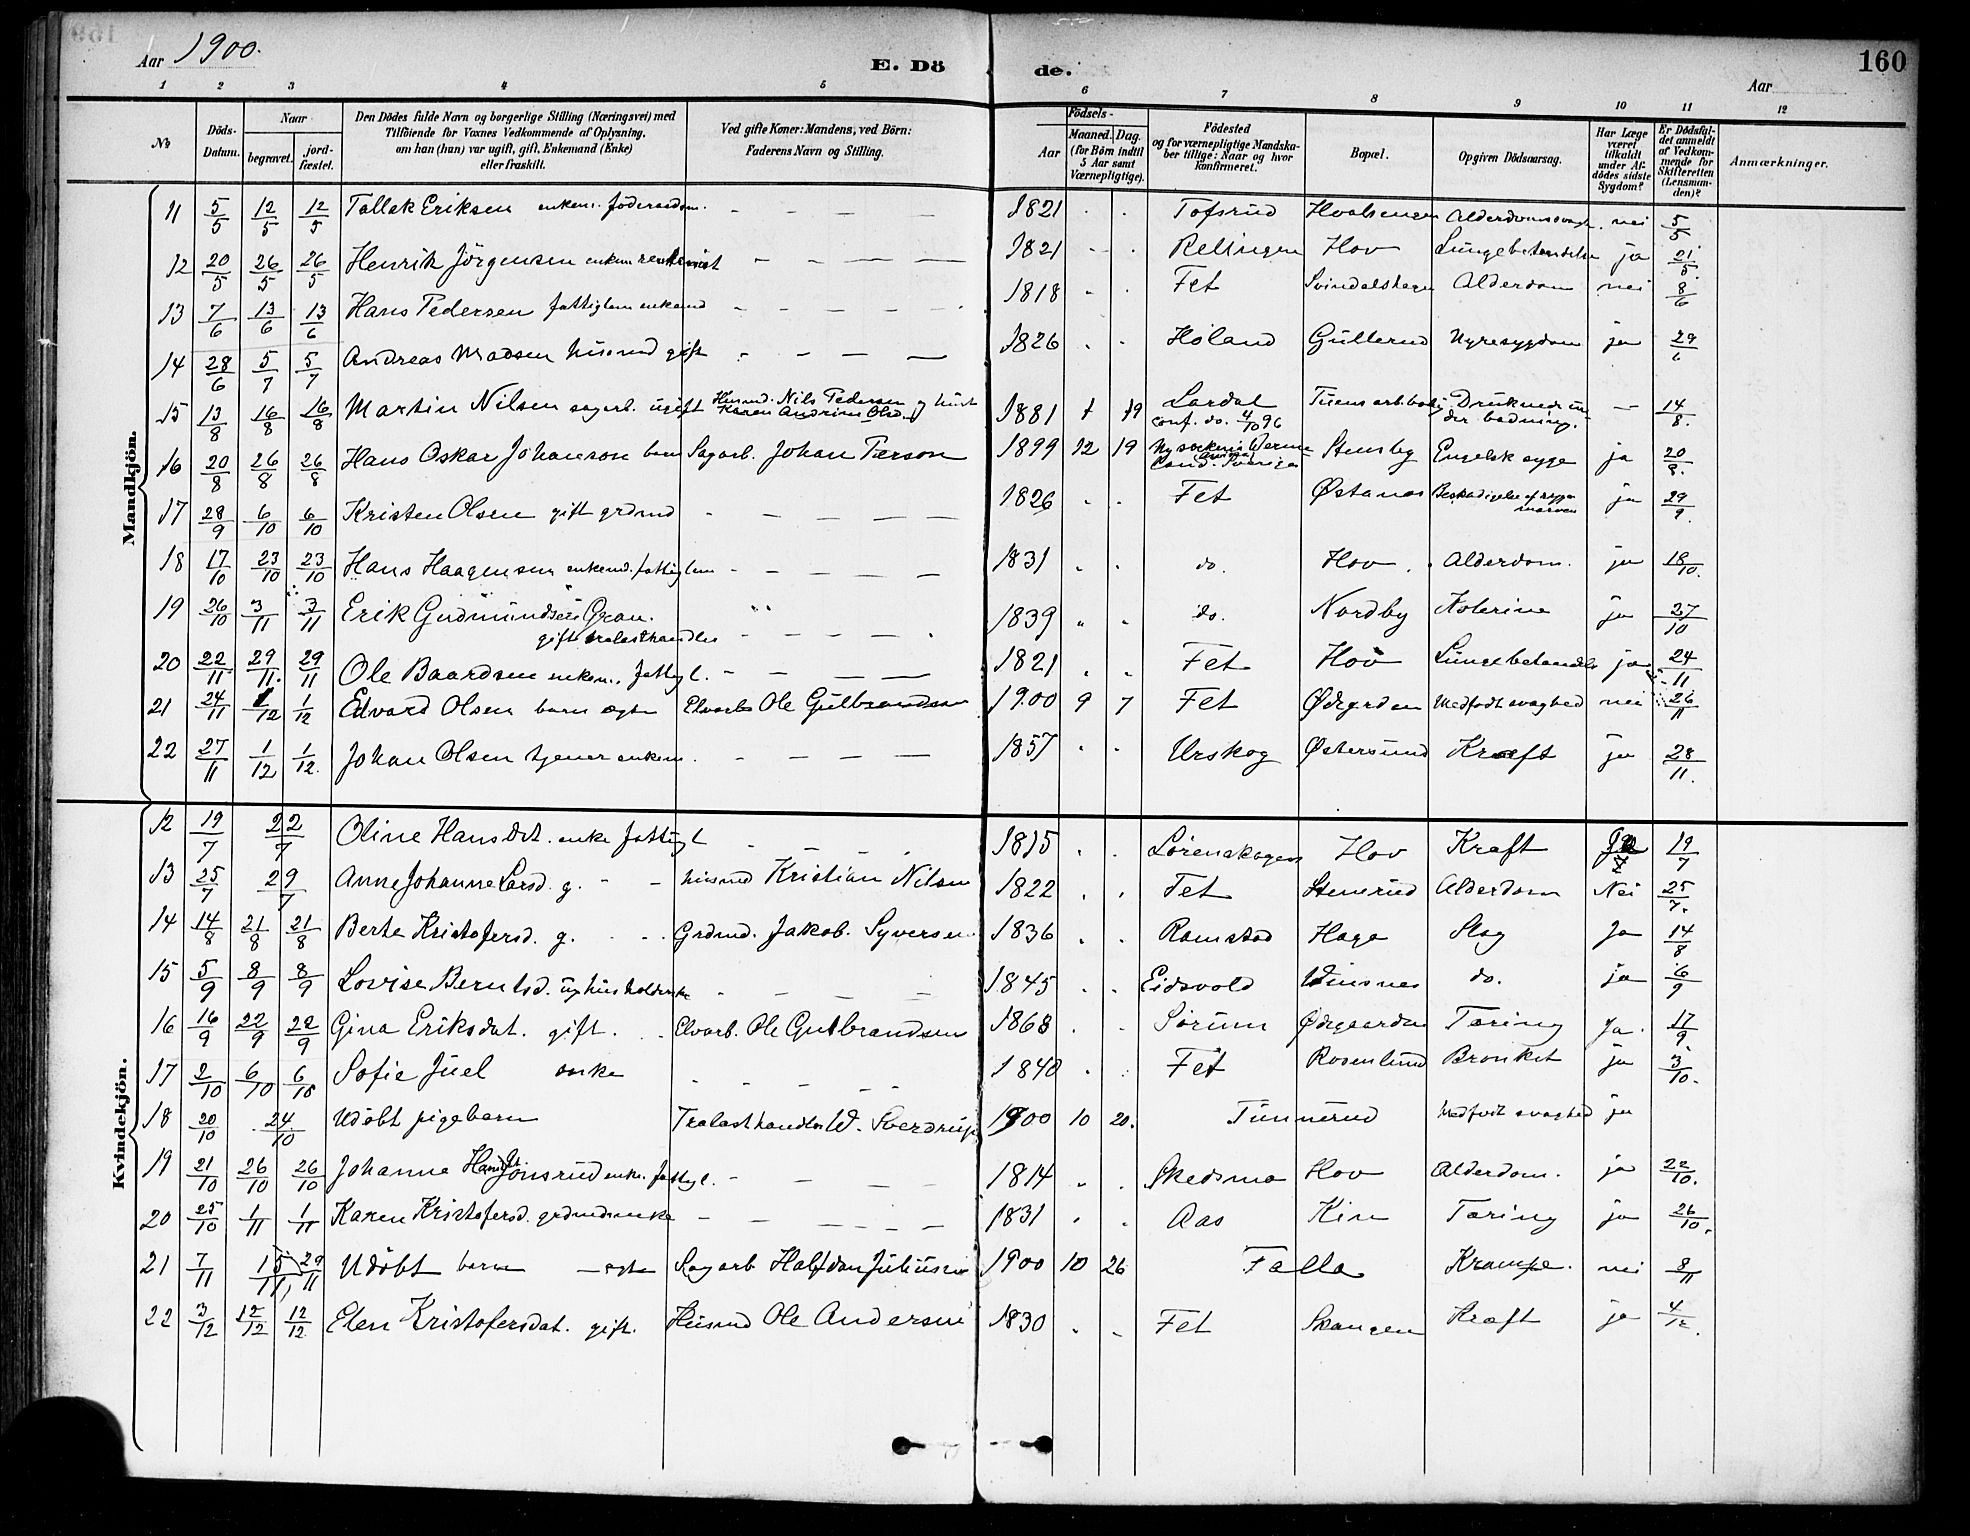 Aar 1900.
E. Dö de.
Aar
160
1 2 3 4 5 6 7 8 9 10 11 12
№
Döds-Datum.
Naar
begravet.
jord-fæstet.
Den Dödes fulde Navn og borgerlige Stilling (Næringsvei) med
Tilföiende for Voxnes Vedkommende af Oplysning,
om han (hun) var ugift, gift, Enkemand (Enke)
eller fraskilt.
Ved gifte Koner: Mandens, ved Börn:
Faderens Navn og Stilling.
Födsels-
Aar
Maaned. Dag.
(for Börn indtil 5 Aar samt Værnepligtige).
Födested
og for værnepligtige Mandska-
ber tillige: Naar og hvor
konfirmeret.
Bopæl.
Opgiven Dödsaarsag.
Har Læge været tilkaldt under Af-dödes sidste Sygdom?
Er Dödsfal-det anmeldt af Vedkom-mende for Skifteretten (Lensman-den)?
Anmærkninger.
Mandkjön.
11 5/5 12/5 12/5 Tollek Eriksen enkem. föderaadsm. - - - - 1821 Tofsrud Hvalsengen Alderdomssvagh. nei 5/5
12 20/5 26/5 26/5 Henrik Jörgensen enkem - - - - 1821 Rellingen Hov Lungebetændelse ja 21/5
13 7/6 13/6 13/6 Hans Pedersen fattiglem enkemd - - - - 1818 Fet Svindalshagen Alderdom nei 8/6
14 28/6 5/7 5/7 Andreas Madsen husmd gift - - - 1826 Höland Gullerud Nyresygdom ja 29/6
15 13/8 16/8 16/8 Martin Nilsen sagarb. ugift Husmd. Nils Pedersen og hust Karen Andrine Olsd. 1881 7 19 Lardal conf. do. 4/10 96 Druknede under badning. - 14/8
16 20/8 26/8 26/8 Hans Oskar Johanson barn Sagarb. Johan Person 1899 12 19 Sverige Stensby Engelsk syge ja 20/8
17 28/9 6/10 6/10 Kristen Olsen gift grdmd - - - - 1826 Fet Østanes Beskadigelse af rygmarven ja 29/9
18 17/10 23/10 23/10 Hans Haagensen enkemd. fattiglem - - - - 1831 do. Hov Alderdom. ja 18/10
19 26/10 3/11 3/11 Erik Gudmundsen Gran. gift trælasthandler - - - - 1839 do. Nordby Kolerine ja 27/10
20 22/11 29/11 29/11 Ole Baardsen enkem. fattigl. - - - - 1821 Fet Hov Lungebetændelse ja 24/11
21 24/11 1/12 1/12 Edvard Olsen barn ægte Elvarb Ole Gulbrandsen 1900 9 7 Fet Ødegrden Medfödt svaghed nei 26/11
22 27/11 1/12 1/12 Johan Olsen tjener enkem. - - - - 1857 Urskog Østersund Kræft ja 28/11
Kvindekjön.
12 19/7 22/7 Oline Hansdat. enke fattigl - - - 1815 Lörenskogen Hov Kræft Ja 19/7
13 25/7 29/7 Anne Johanne Larsd. g. - - husmd Kristian Nilsen 1822 Fet Stenerud Alderdom Nei 25/7
14 14/8 21/8 21/8 Berte Kristofersd. g. Grdmd. Jakob Syversen 1836 Ramstad Haga Slag Ja 14/8
15 5/9 8/9 8/9 Lovise Berntsd. ug husholderske - - - 1845 Eidsvold do. ja 6/9
16 16/9 22/9 22/9 Gina Eriksdat. gift. Elvarb. Ole Gulbrandsen 1868 Sörum Ødegaarden Tæring Ja. 17/9
17 2/10 6/10 6/10 Sofie Juel enke - - - 1840 Fet Rosenlund Bronkit ja 3/10
18 20/10 24/10 Udöbt pigebarn Trælasthandler W. Sverdrup 1900 10 20. Tunnerud Medfödt svaghed ja
19 21/10 26/10 26/10 Johanne Hansdt Jonsrud enke. fattigl. - - - 1814 Skedsmo Hov Alderdom. ja 22/10
20 25/10 1/11 1/11 Karen Kristofersd. grdmdsenke - - - 1831 Aas Kin Tæring ja 26/10
21 7/11 15/11 29/11 Udöbt barn - ægte Sagarb Halfdan Juliusen 1900 10 26 Falla Krampe. nei 8/11
22 3/12 12/12 12/12 Elen Kristofersdat. gift. Husmd Ole Andersen 1830 Fet Skangen Kræft ja 4/12